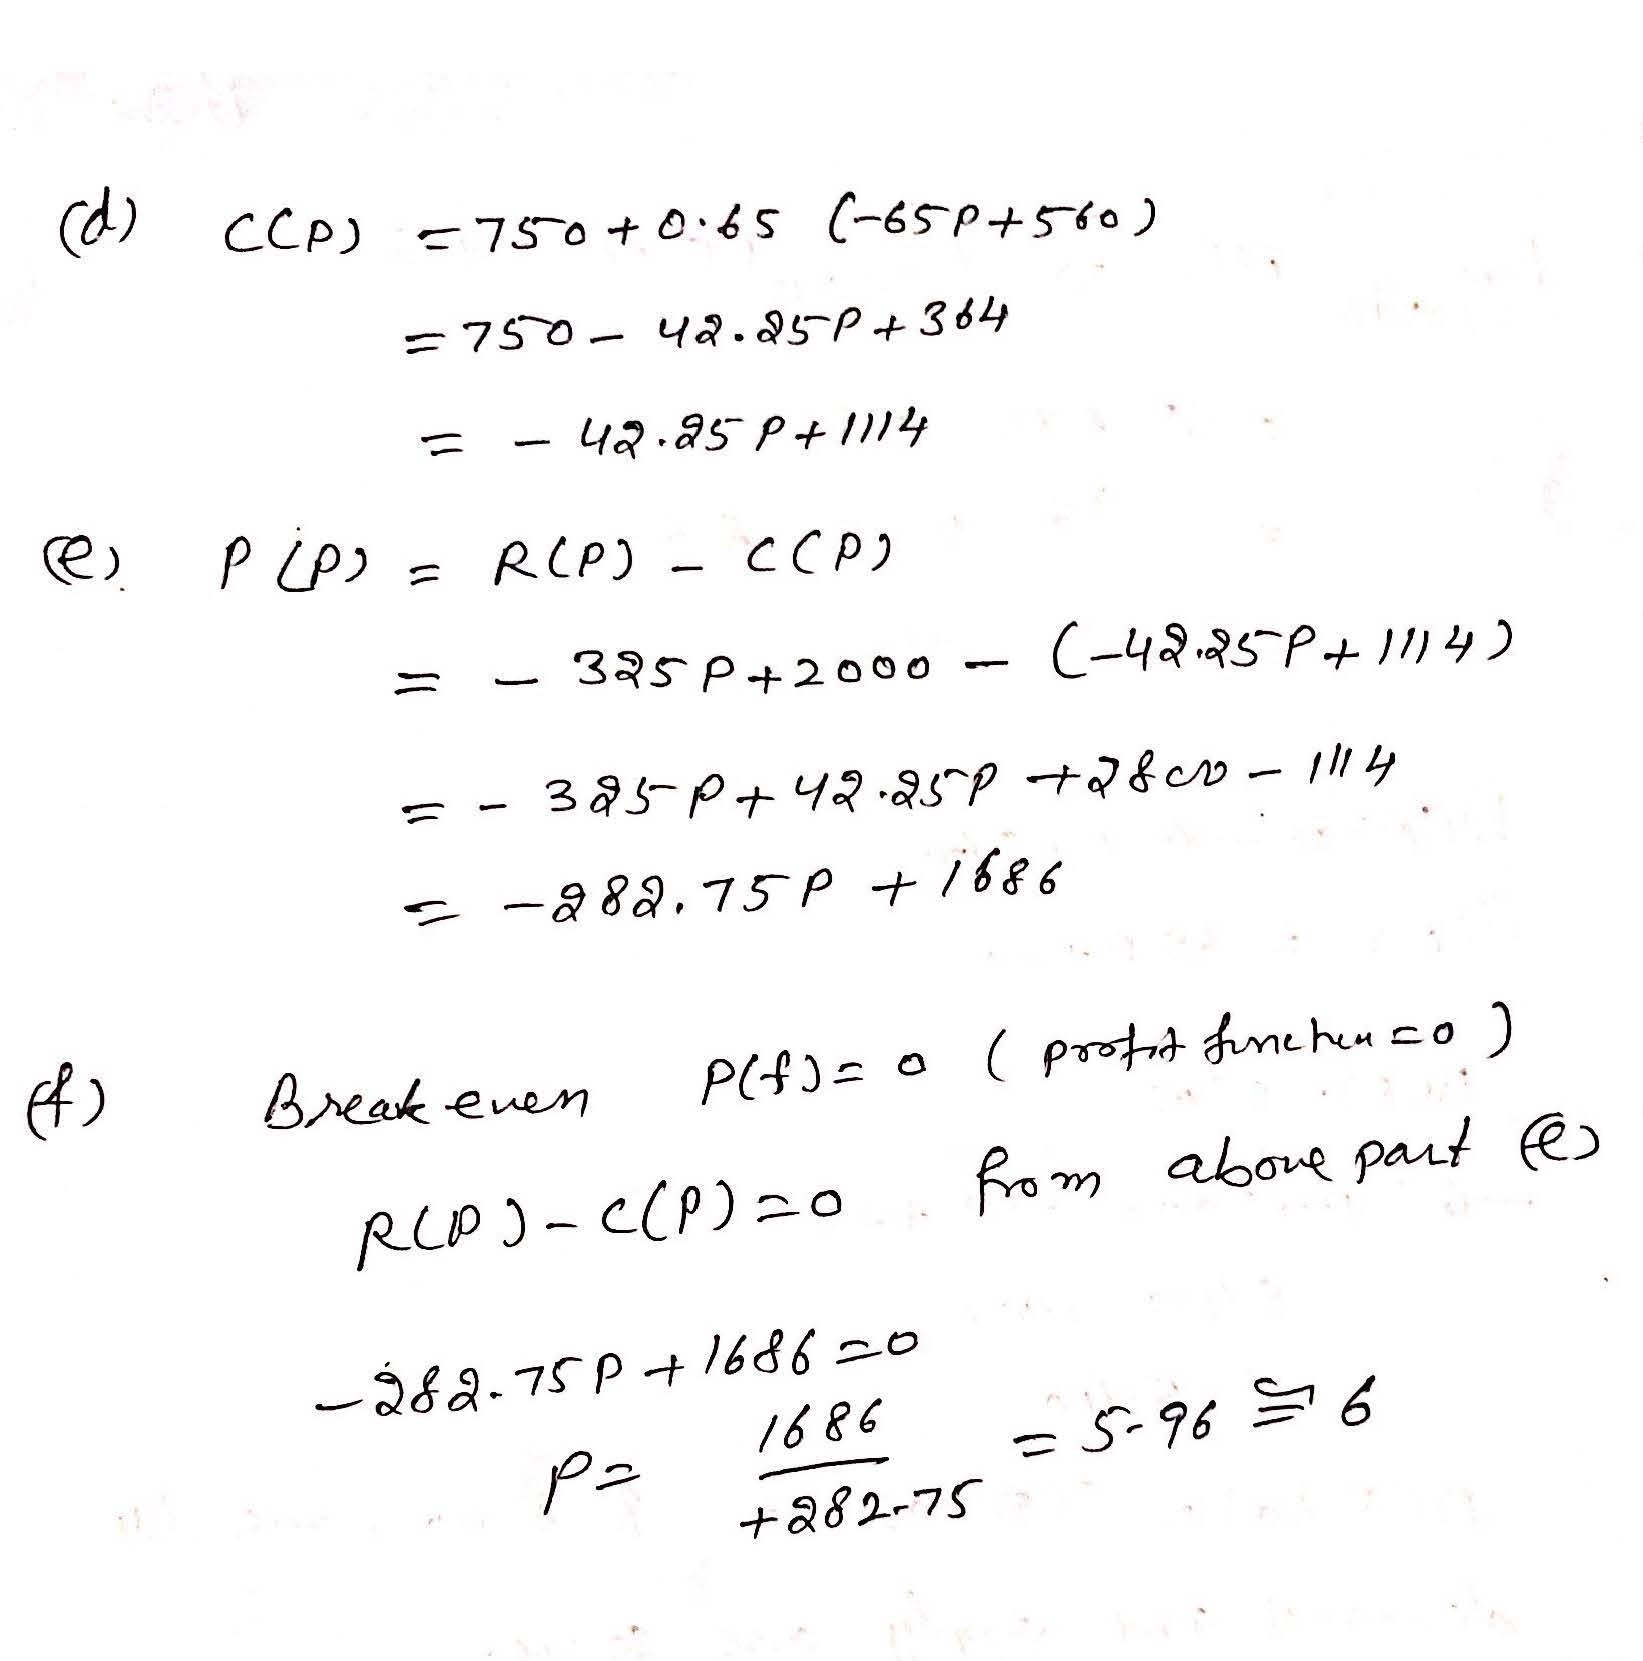 (d) C(P) = 750 + 0.65 (-65P+560)
= 750 - 42.25P + 364
= - 42.25P + 1114
(e). P(P) = R(P) - C(P)
= - 325P + 2000 - (-42.25P + 1114)
= - 325P + 42.25P + 2800 - 1114
= -282.75P + 1686
(f) Break even P(f) = 0 ( profit function = 0 )
R(P) - C(P) = 0 from above part (e)
-282.75P + 1686 = 0
P = 1686 / +282.75 = 5.96 ≅ 6